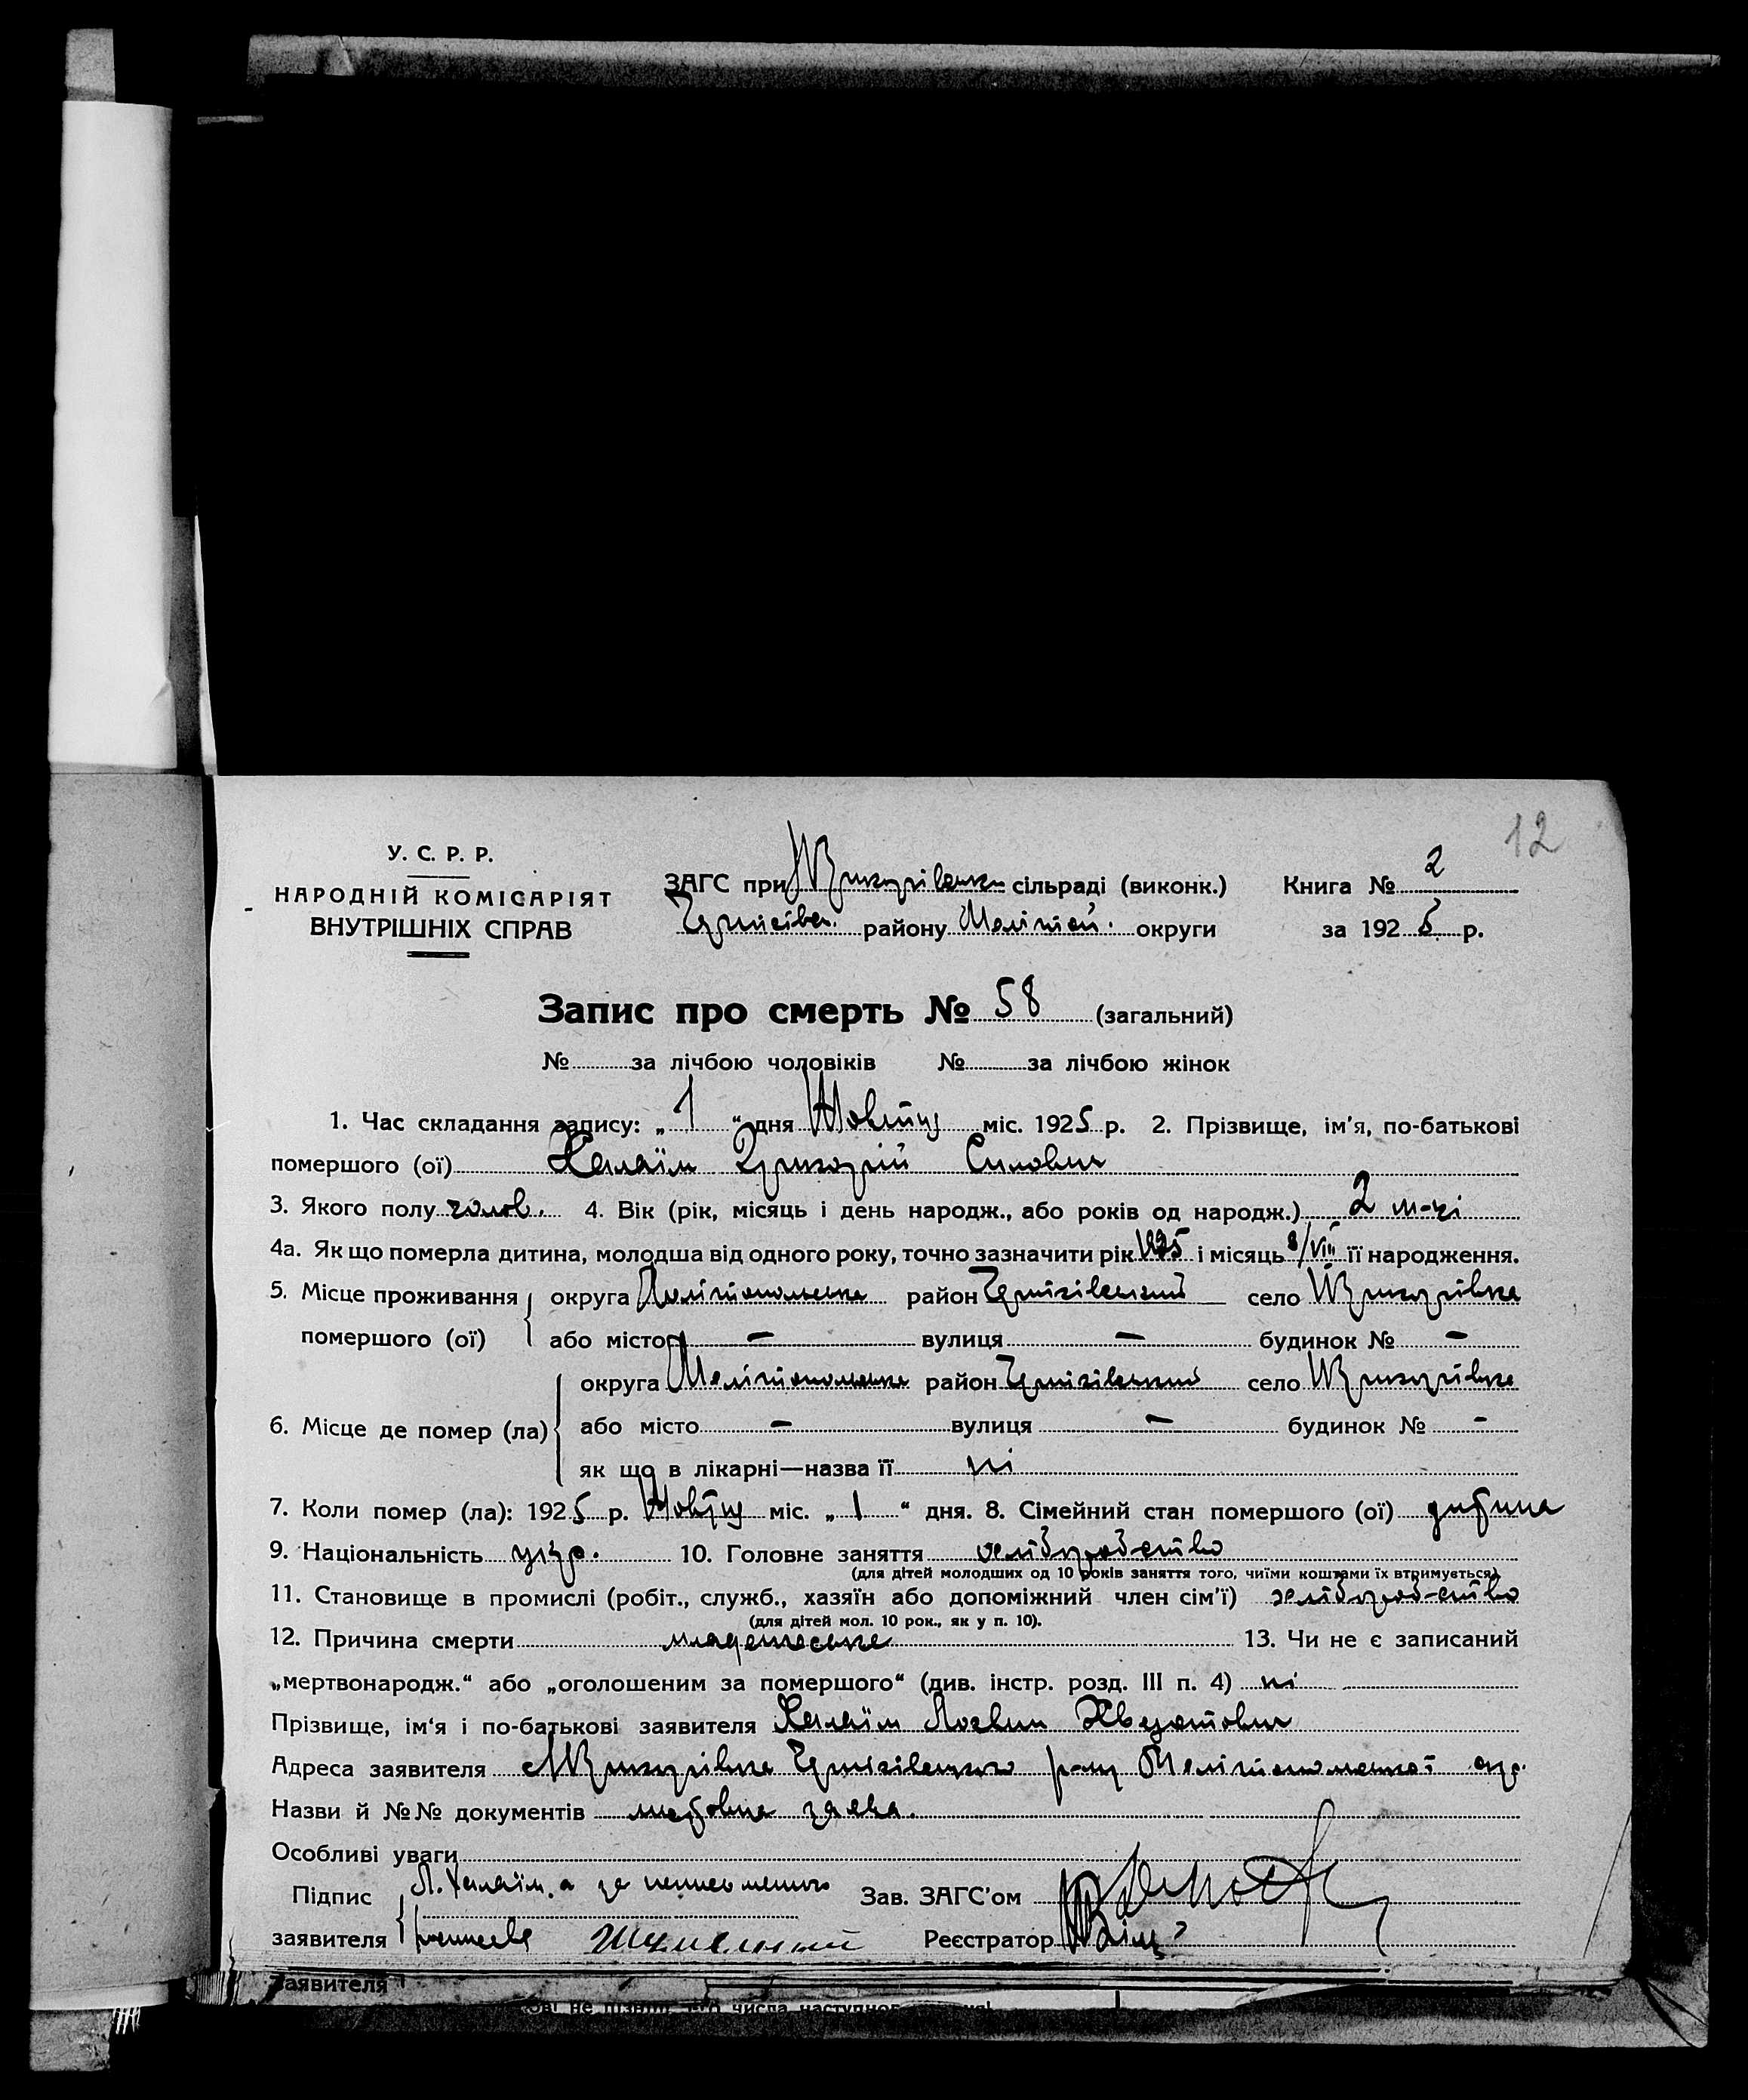 12
У. С. Р. Р.
НАРОДНІЙ КОМІСАРІЯТ
ВНУТРІШНІХ СПРАВ
ЗАГС при сільраді (виконк.) Книга № 2
району округи за 1925 р.
Запис про смерть № 58 (загальний)
№ за лічбою чоловіків № за лічбою жінок
1. Час складання запису: „ 1 “ дня Жовтня міс. 1925 р. 2. Прізвище, ім'я, по-батькові
помершого (ої) Халаїм Григорій Силович
3. Якого полу чолов. 4. Вік (рік, місяць і день народж., або років од народж.) 2 м-ці
4а. Як що померла дитина, молодша від одного року, точно зазначити рік 1925 і місяць 8/VIII її народження.
5. Місце проживання округа Мелітопольська район Чернігівський село
помершого (ої) або місто — вулиця — будинок № —
округа Мелітопольська район Чернігівський село
6. Місце де помер (ла) або місто — вулиця — будинок № —
як що в лікарні—назва її ні
7. Коли помер (ла): 1925 р. Жовтня міс. „ 1 “ дня. 8. Сімейний стан помершого (ої) дитина
9. Національність укр. 10. Головне заняття хліборобство
(для дітей молодших од 10 років заняття того, чиїми коштами їх втримується).
11. Становище в промислі (робіт., служб., хазяїн або допоміжний член сім'ї) хлібороб-ство
(для дітей мол. 10 рок., як у п. 10).
12. Причина смерти младенческа 13. Чи не є записаний
„мертвонародж.“ або „оголошеним за помершого“ (див. інстр. розд. III п. 4) ні
Прізвище, ім'я і по-батькові заявителя Халаїм Логвин
Адреса заявителя Чернігівського р-ну Мелітопольської окр.
Назви й №№ документів заява.
Особливі уваги
Підпис Л. Халаїм, а за неписьменого Зав. ЗАГС'ом
заявителя Реєстратор
Заявителя